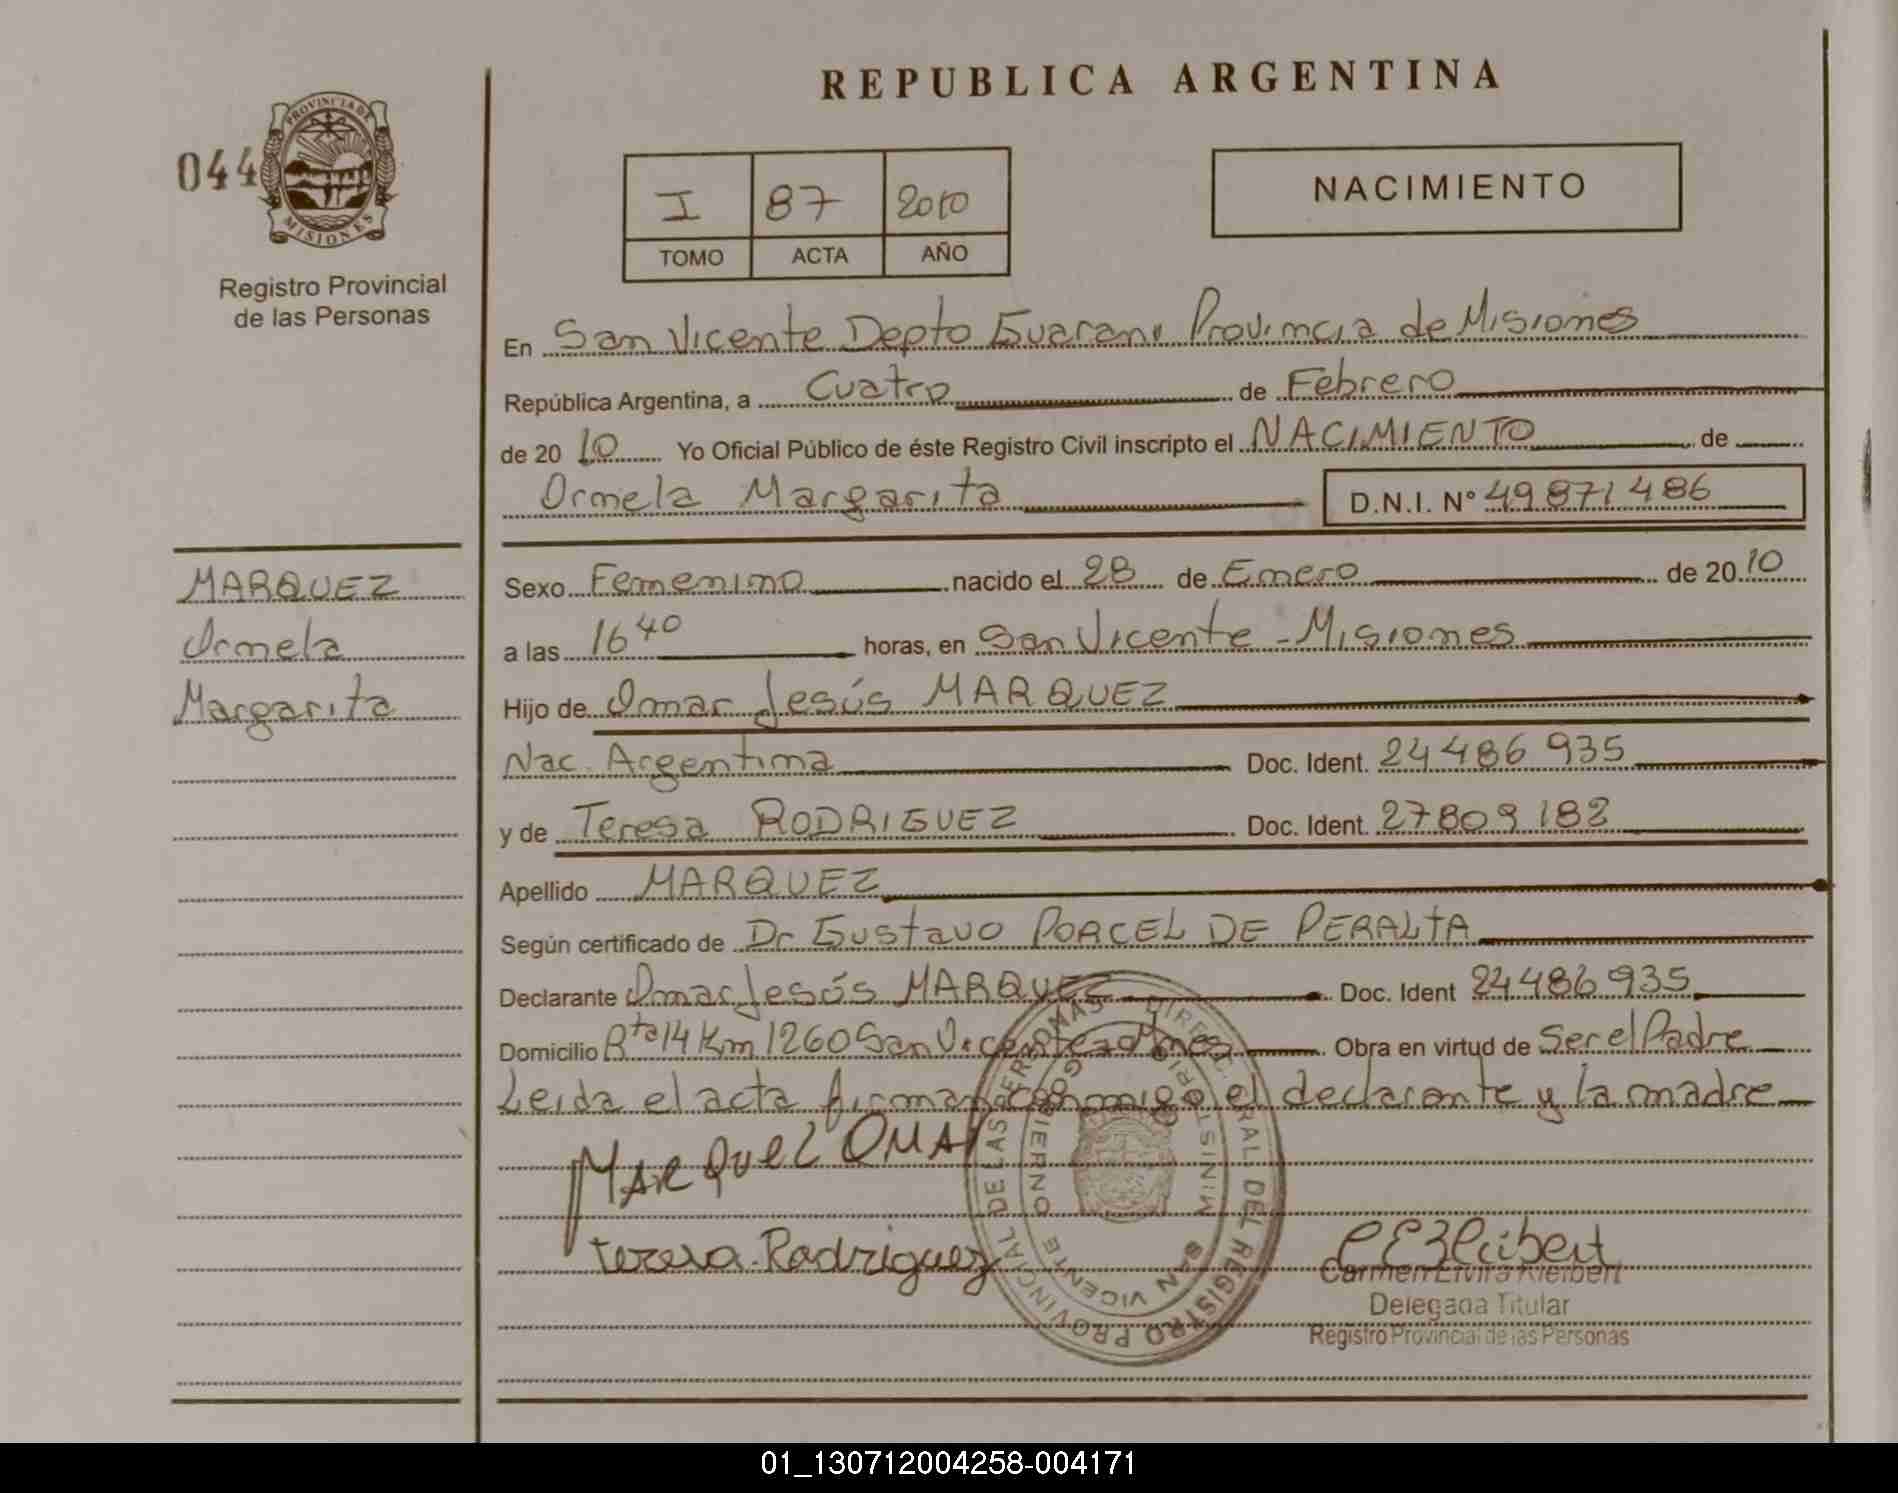 REPUBLICA ARGENTINA
044
PROVINCIA DE
MISIONES
Registro Provincial
de las Personas
I 87 2010
TOMO ACTA AÑO
NACIMIENTO
En San Vicente Depto Guarani Provincia de Misiones
República Argentina, a Cuatro de Febrero
de 2010 Yo Oficial Público de éste Registro Civil inscripto el NACIMIENTO de
Ornela Margarita D.N.I. Nº 49871486
MARQUEZ
Ornela
Margarita
Sexo Femenino nacido el 28 de Enero de 2010
a las 16 40 horas, en San Vicente - Misiones
Hijo de Omar Jesús MARQUEZ
Nac. Argentina Doc. Ident. 24486935
y de Teresa RODRIGUEZ Doc. Ident. 27809182
Apellido MARQUEZ
Según certificado de Dr Gustavo PORCEL DE PERALTA
Declarante Omar Jesús MARQUEZ Doc. Ident 24486935
Domicilio Rta 14 Km 1260 San Vicente Mnes Obra en virtud de Ser el Padre
Leida el acta firman conmigo el declarante y la madre
MARQUEZ OMAR
teresa Rodriguez
Carmen Elvira Kleibert
Delegada Titular
Registro Provincial de las Personas
REGISTRO PROVINCIAL DE LAS PERSONAS
SAN VICENTE
01_130712004258-004171